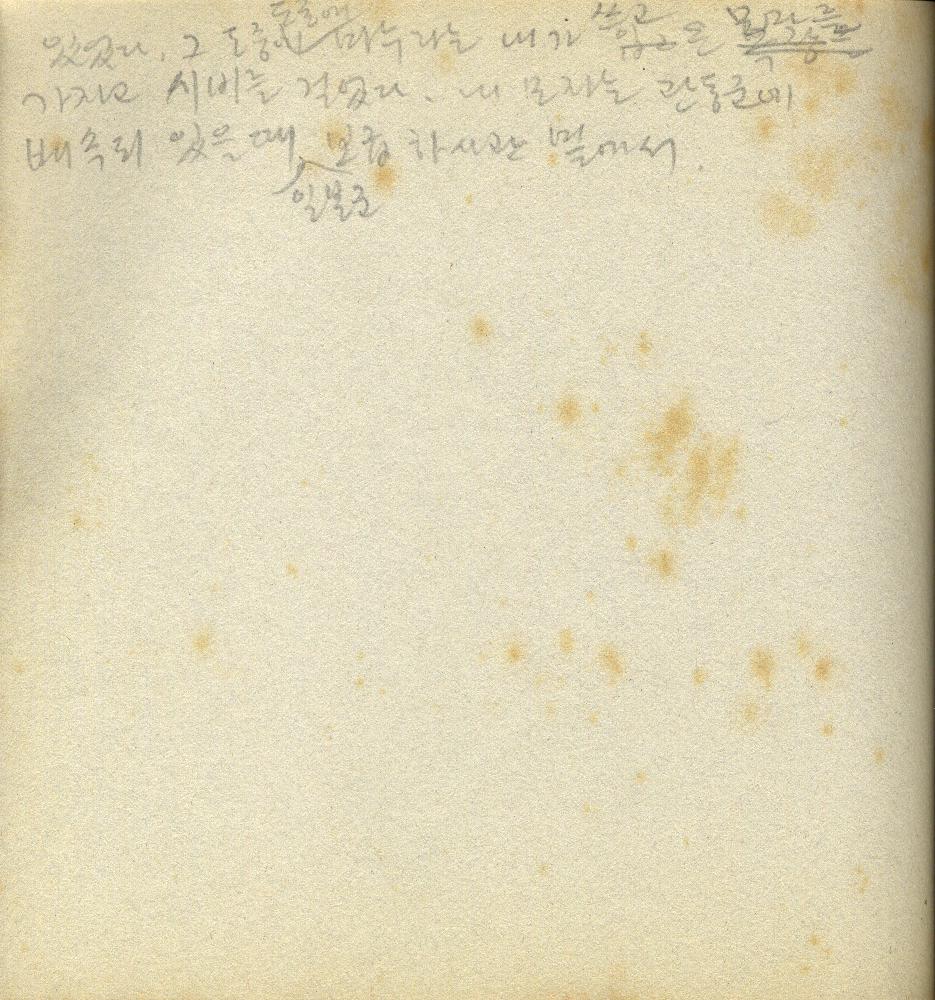 있었다. 그 도중 마누라는 내가 쓰고 온 모자를
가지고 시비를 걸었다. 내 모자는 관동군에
배속되 있을 때 보급 하사관 밑에서.
일본군